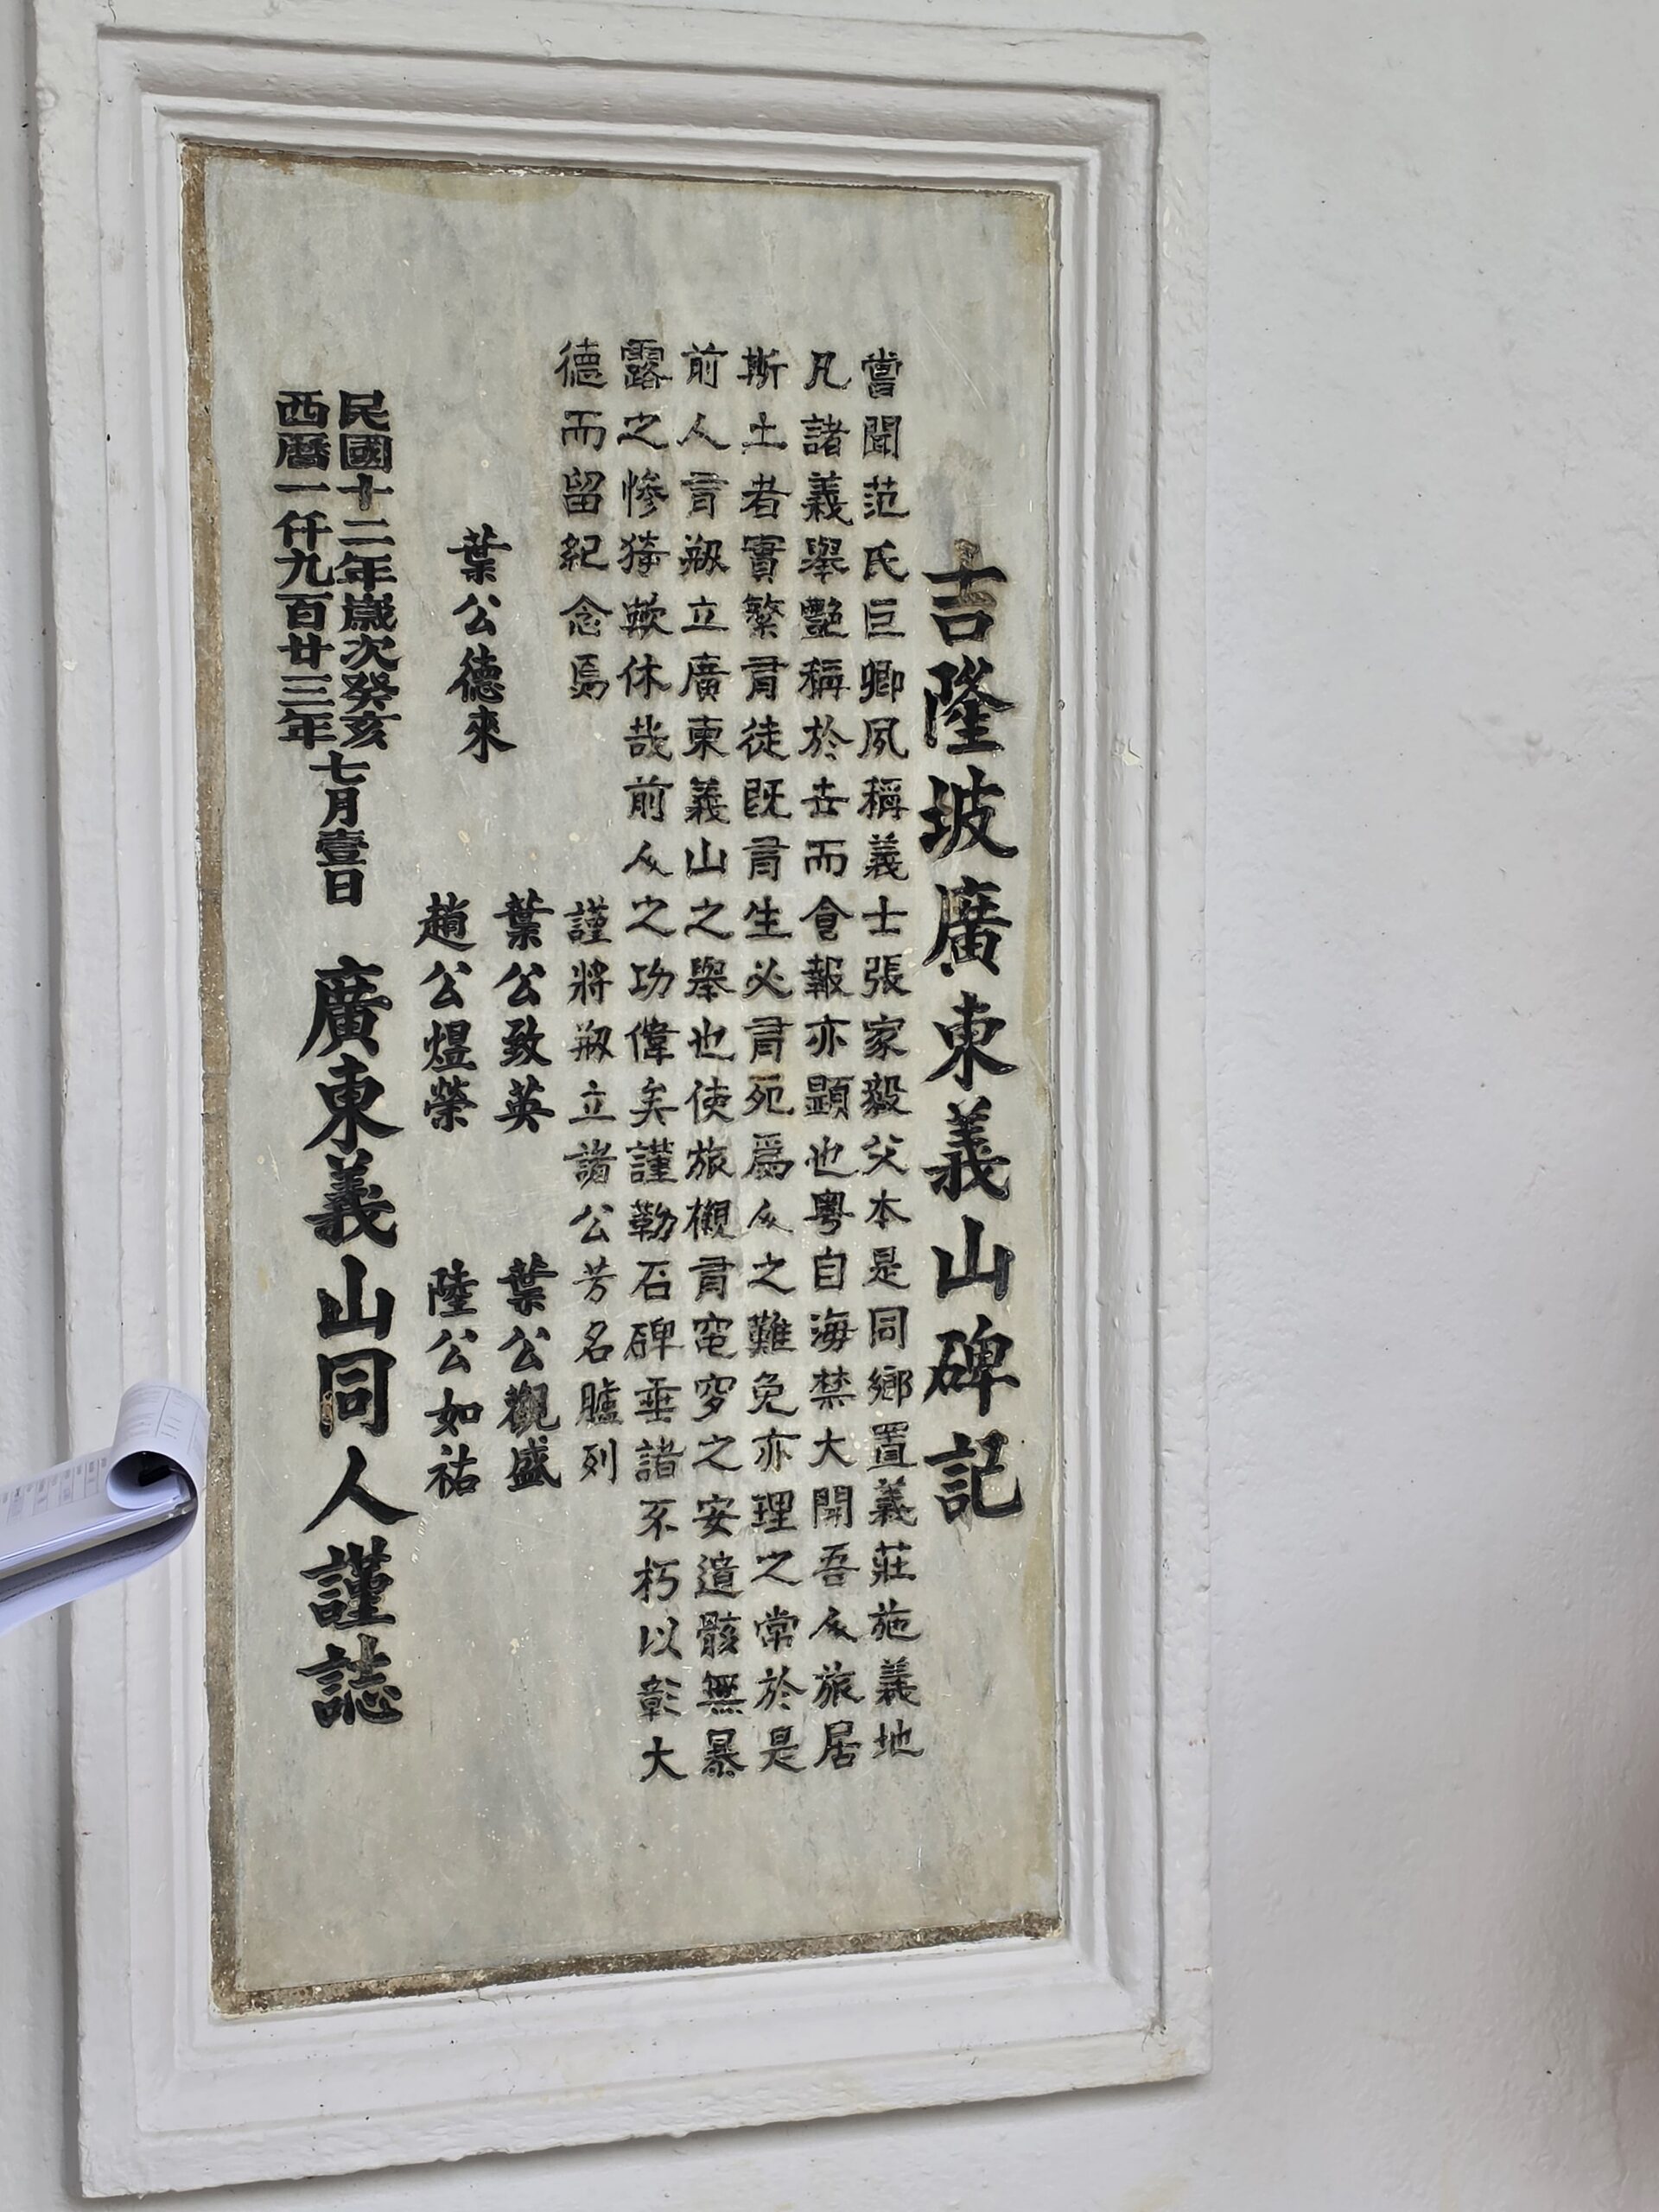 吉隆坡廣東義山碑記
嘗聞范氏巨卿夙稱義士張家毅父本是同鄉置義莊施義地
凡諸義舉艷稱於世而食報亦顯也粵自海禁大開吾人旅居
斯土者實繁有徒既有生必有死爲人之難免亦理之常於是
前人有剏立廣東義山之舉也使旅櫬有窀穸之安遺骸無暴
露之慘猗歟休哉前人之功偉矣謹勒石碑垂諸不朽以彰大
德而留紀念焉
謹將剏立諸公芳名臚列
葉公德來
葉公致英
葉公觀盛
趙公煜榮
陸公如祐
民國十二年歲次癸亥
西曆一仟九百廿三年
七月壹日
廣東義山同人謹誌